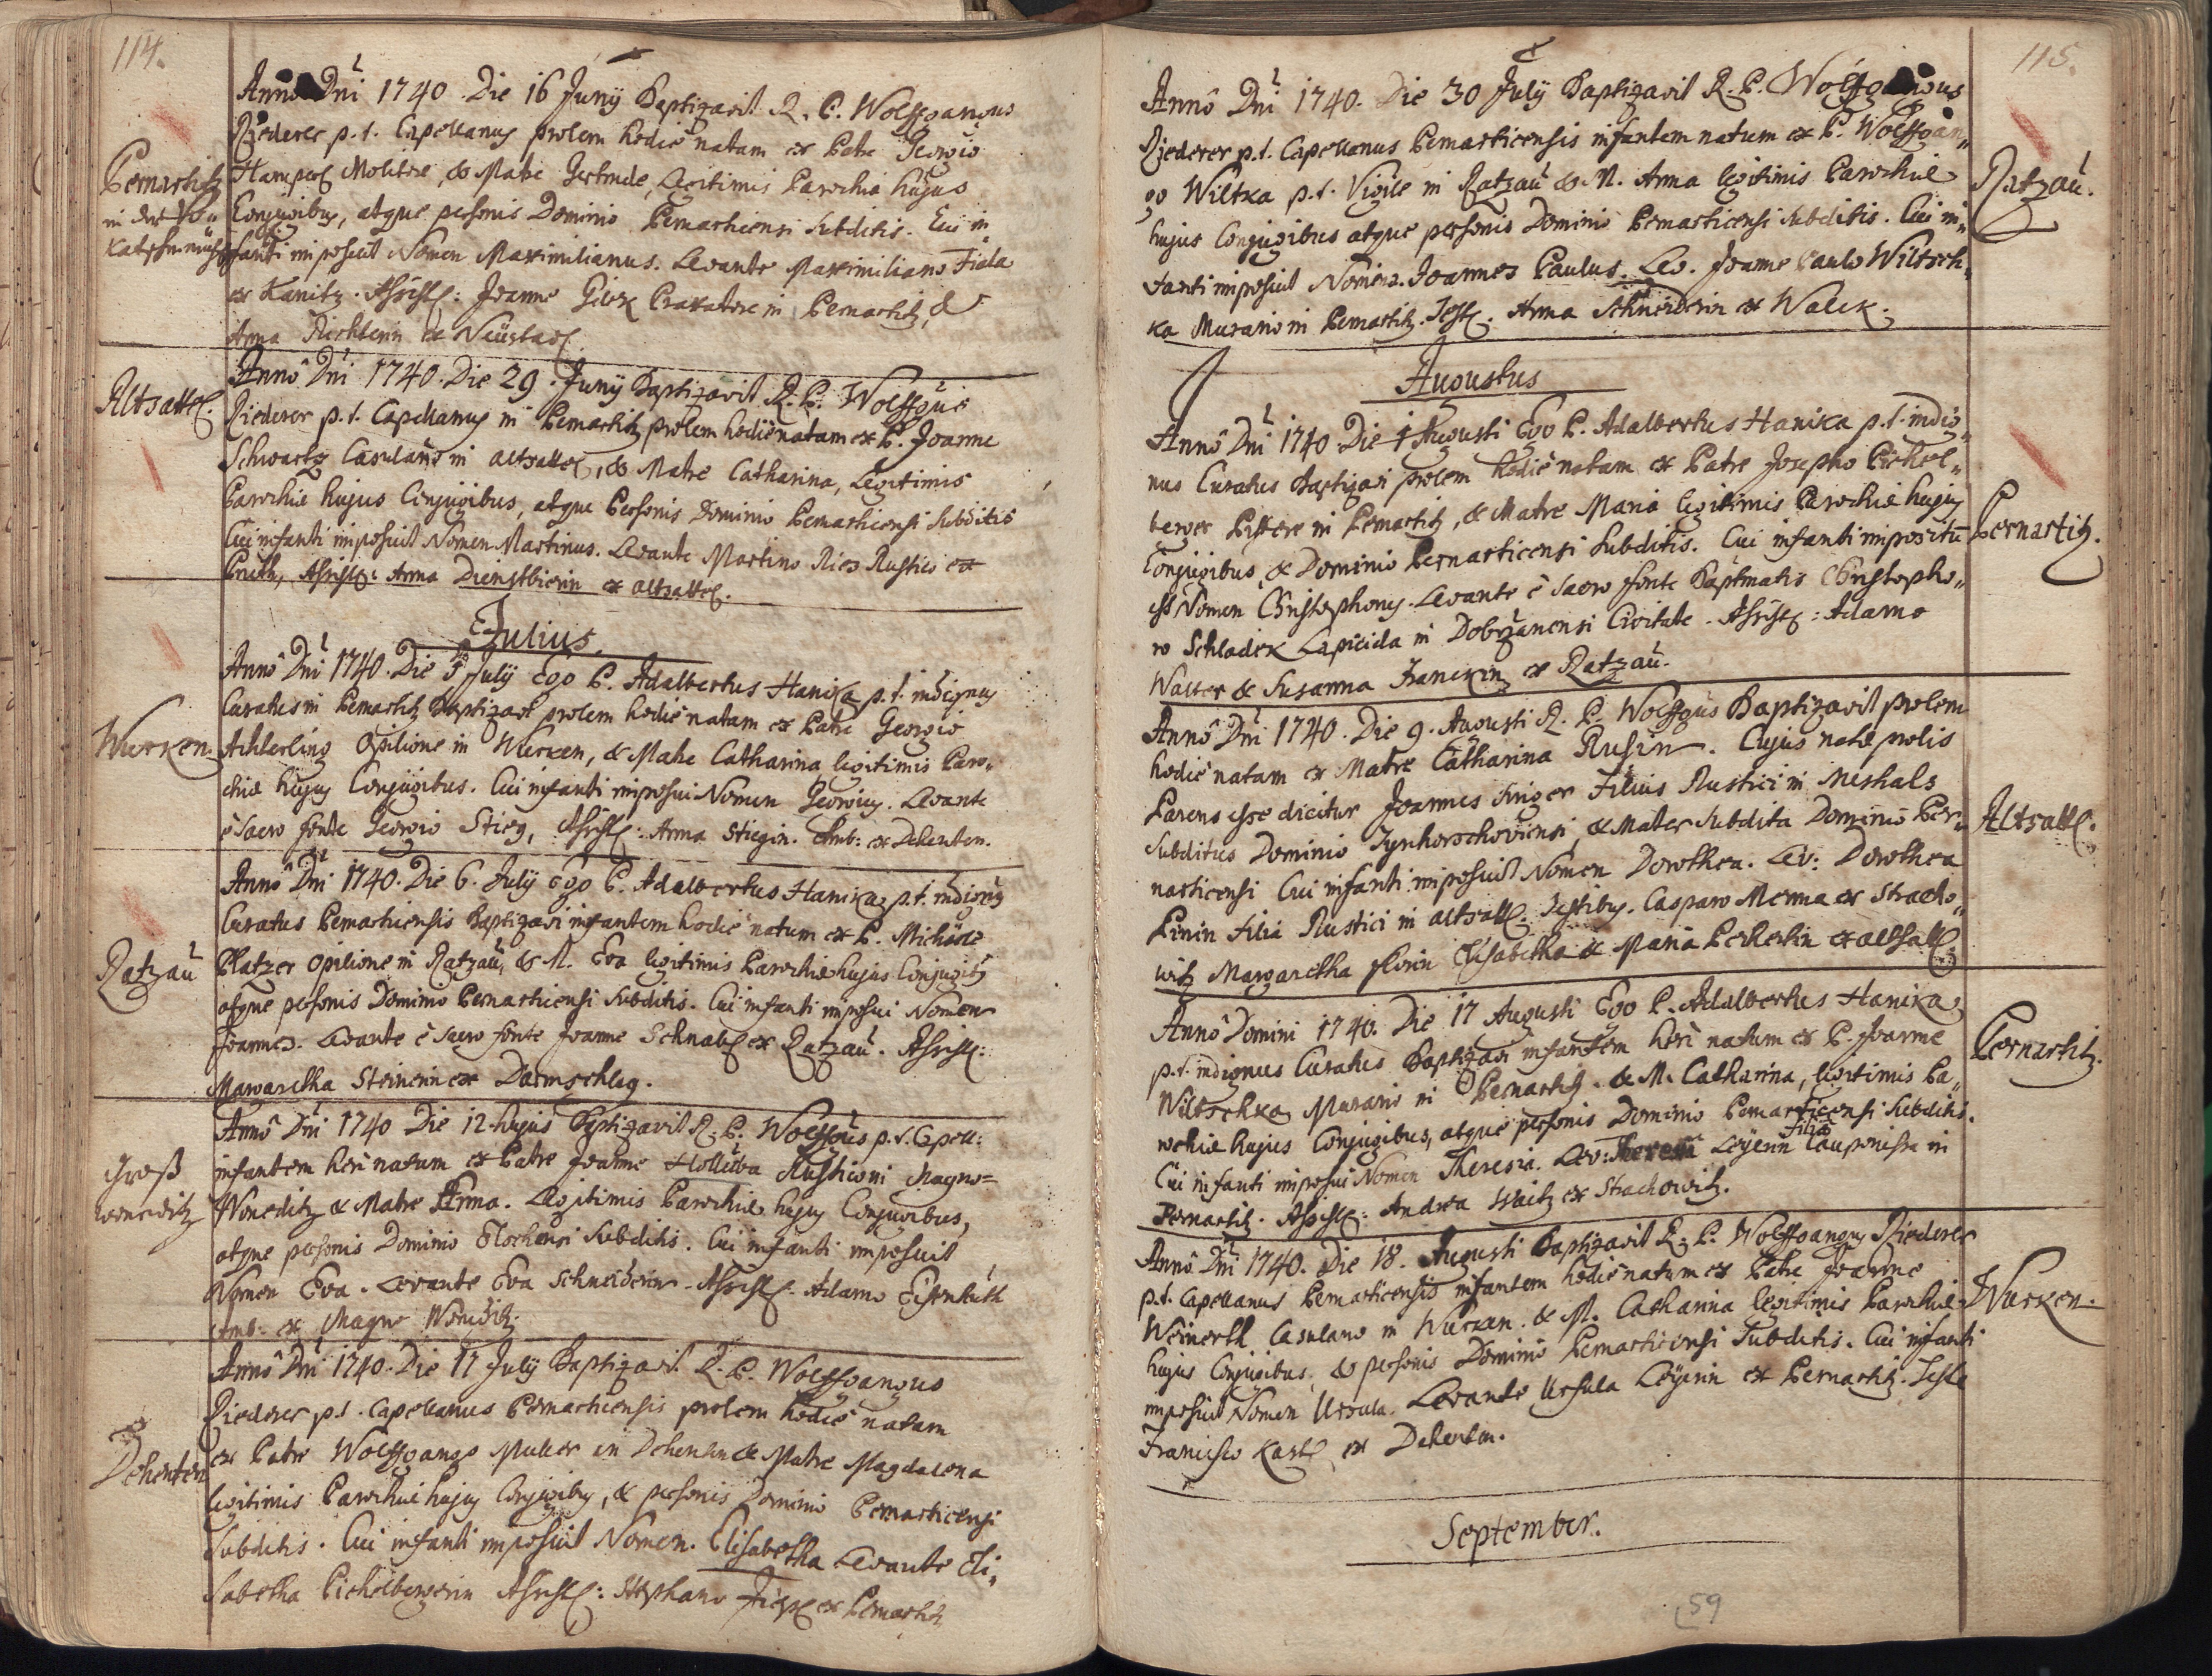 114.
Annô Dni 1740. Die 16 Junÿ Baptizavit R. P. Wolffgangus
Riederer p.t. Capellanus prolem hodie natam ex Patre Georgio
Molitore, & Matre Gertrude, Legitimis Parochiæ hujus
Conjugibus, atque personis Dominio Pernarticensi Subditis. Cui in
fanti imposuit Nomen Maximilianus. Levante Maximiliano Fiala
ex Kanitz. Assist: Joanne Gilek in Pernartitz, &
Anna Richterin ex Neüstadl.
Pernartitz
in der
Annô Dni 1740. Die 29. Junÿ Baptizavit R. P. Wolffgus
Riederer p.t. Capellanus in Pernartitz prolem hodie natam ex P. Joanne
Schwartz Casulano in altsattel, & Matre Catharina, Legitimis
Parochiæ hujus Conjugibus, atque Personis Dominio Pernarticensi Subditis
Cui infanti imposuit Nomen Martinus. Levante Martino Ries Rustico ex
Assist: Anna Dienstbierin ex altsattel.
Altsattel.
Julius.
Annô Dni 1740. Die 5 Julÿ Ego P. Adalbertus Hanika p.t. indignus
Curatus in Pernartitz Baptizavi prolem hodie natam ex Patre Georgio
Achterling Opilione in Wurken, & Matre Catharina legitimis Paro„
chiæ hujus Conjugibus. Cui infanti imposui Nomen Georgius. Levante
è Sacro fonte Georgio Stieg, Assist: Anna Stiegin. Amb: ex Dehenten.
Wurken.
Annô Dni 1740. Die 6. Julÿ Ego P. Adalbertus Hanika p.t. indignus
Curatus Pernarticensis Baptizavi infantem hodie natum ex P. Michaele
Platzer Opilione in Ratzaü, & M. Eva legitimis Parochiæ hujus Conjugibus
atque personis Dominio Pernarticensi Subditis. Cui infanti imposui Nomen
Joannes. Levante è Sacro fonte Joanne Schnabl ex Ratzaü. Assist:
Margaretha Steinerin ex Darmschlag.
Ratzaü
Annô Dni 1740 Die 12 hujus Baptizavit R. P. Wolffgus p.t. Capell:
infantem heri natum ex Patre Joanne Holluba Rustico in Magno=
Woneditz & Matre Anna. Legitimis Parochiæ hujus Conjugibus,
atque personis Dominio Subditis. Cui infanti imposuit
Nomen Eva. Levante Eva Schneiderin. Assist: Adamo Eisenhuth
Amb. ex Magno Woneditz.
Groß
woneditz
Annô Dni 1740. Die 17 Julÿ Baptizavit R. P. Wolffgangus
Riederer p.t. Capellanus Pernarticensis prolem hodie natam
ex Patre Wolffgango Muller in Dehenten & Matre Magdalena
legitimis Parochiæ hujus Conjugibus, & personis Dominio Pernarticensi
Subditis. Cui infanti imposuit Nomen. Elisabetha Levante Eli„
sabetha Pichelbergerin Assist: Stephano ex Pernartitz
Dehenten
115.
Annô Dni 1740. Die 30 Julÿ Baptizavit R. P. Wolffgangus
Riederer p.t. Capellanus Pernarticensis infantem natum ex P. Wolffgan„
go Wiltka p.t. Vigile in Ratzaü & M. Anna legitimis Parochiæ
hujus Conjugibus atque personis Dominio Pernarticensi Subditis. Cui in„
fanti imposuit Nomen. Joannes Paulus. Lev. Joanne Paulo Wiltsch„
ka Murario in Pernartitz. Test. Anna Schneiderin ex Walck.
Ratzaü.
Augustus
Annô Dni 1740 Die 1 Augusti Ego P. Adalbertus Hanika p.t. indig„
nus Curatus Baptizavi prolem hodie natam ex Patre Josepho Pichel„
berger Pistore in Pernartitz, & Matre Maria legitimis Parochiæ hujus
Conjugibus & Dominio Pernarticensi Subditis. Cui infanti impositũ
est Nomen Christophorus. Levante è Sacro fonte Baptmatis Christopho„
ro Schladek Lapicida in Dobrzanensi Civitate. Assist: Adamo
Walter & Susanna Franckin ex Ratzaü.
Pernartitz.
Annô Dni 1740. Die 9. Augusti R. P. Wolffgus Baptizavit prolem
hodie natam ex Matre Catharina Rusin. Cujus natæ prolis
Parens esse dicitur Joannes Singer Filius Rustici in Meshals
Subditus Dominio & Mater Subdita Dominio Per„
narticensi Cui infanti imposuit Nomen Dorothea. Lev: Dorothea
Pinin filia Rustici in altsattl. Testibus. Casparo Menna ex Stracho„
witz Margaretha florin Elisabetha & Maria Pecherlin ex altsattl.
Altsattl.
Annô Domini 1740. Die 17 Augusti Ego P. Adalbertus Hanika
p.t. indignus Curatus Baptizavi infantem heri natum ex P. Joanne
Wiltschka Murario in Pernartitz. & M. Catharina, legitimis Pa„
rochiæ hujus Conjugibus, atque personis Dominio Pernarticensi Subditis.
Cui infanti imposui Nomen Theresia. Lev: Theresia Leÿerin filia Cauponissæ in
Pernartitz. Assist: Andrea Waitz ex Strachowitz.
Pernartitz.
Annô Dni 1740. Die 18. Augusti Baptizavit R. P. Wolffgangus Riederer
p.t. Capellanus Pernarticensis infantem hodie natum ex Patre Joanne
Weinerth Casulano in Wurken. & M. Catharina legitimis Parochiæ
hujus Conjugibus, & personis Dominio Pernarticensi Subditis. Cui infanti
imposuit Nomen Ursula. Levante Ursula Leÿerin ex Pernartitz. Teste
Francisco Kastl ex Dehenten.
Wurken.
September.
59